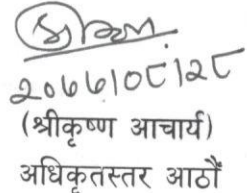 २०७७।०८।२८
(श्रीकृष्ण आचार्य)
अधिकृतस्तर आठौं